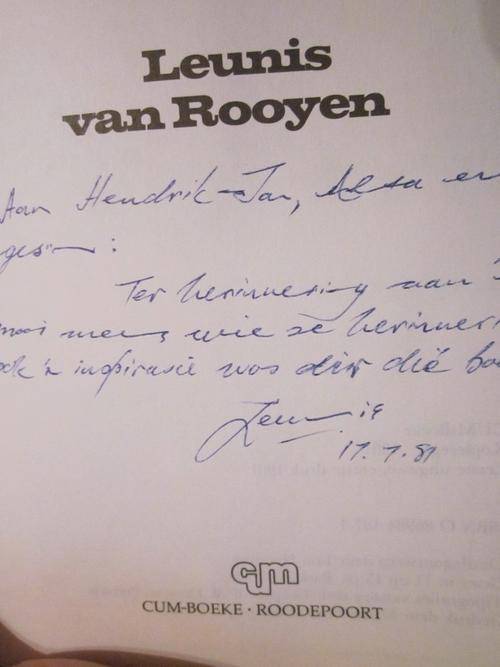 Leunis
van Rooyen
Aan Hendrik-Jan, Alta en
gesin:
Ter herinnering aan 'n
mooi mens wie se herinner
ook 'n inspirasie was dwir dié bo
Leunis
17.7.81
cum
CUM-BOEKE · ROODEPOORT